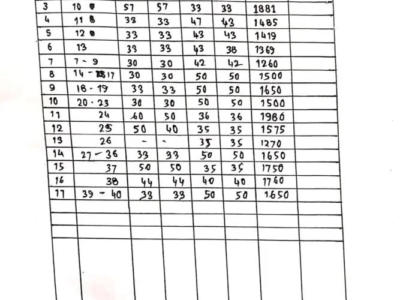 3 10 57 57 33 33 1881
4 11 33 33 47 43 1485
5 12 33 33 43 43 1419
6 13 33 33 43 38 1369
7 7 - 9 30 30 42 42 1260
8 14 - 17 30 30 50 50 1500
9 18 - 19 33 33 50 50 1650
10 20 - 23 30 30 50 50 1500
11 24 60 50 36 36 1980
12 25 50 40 35 35 1575
13 26 - - 35 35 1270
14 27 - 36 33 33 50 50 1650
15 37 50 50 35 35 1750
16 38 44 44 40 40 1760
17 39 - 40 33 33 50 50 1650